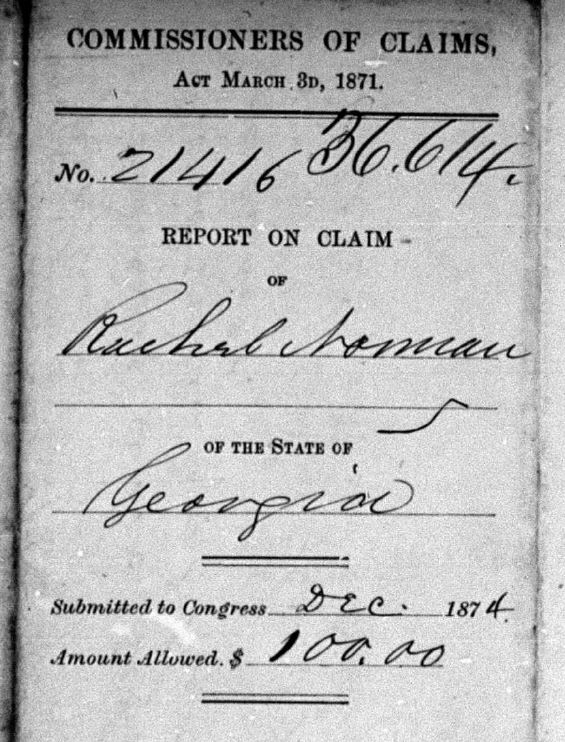 COMMISSIONERS OF CLAIMS,
ACT MARCH 3D, 1871.
No. 21416 36.614.
REPORT ON CLAIM
OF
Rachel Norman
OF THE STATE OF
Georgia
Submitted to Congress Dec. 1874.
Amount Allowed. $ 100.00